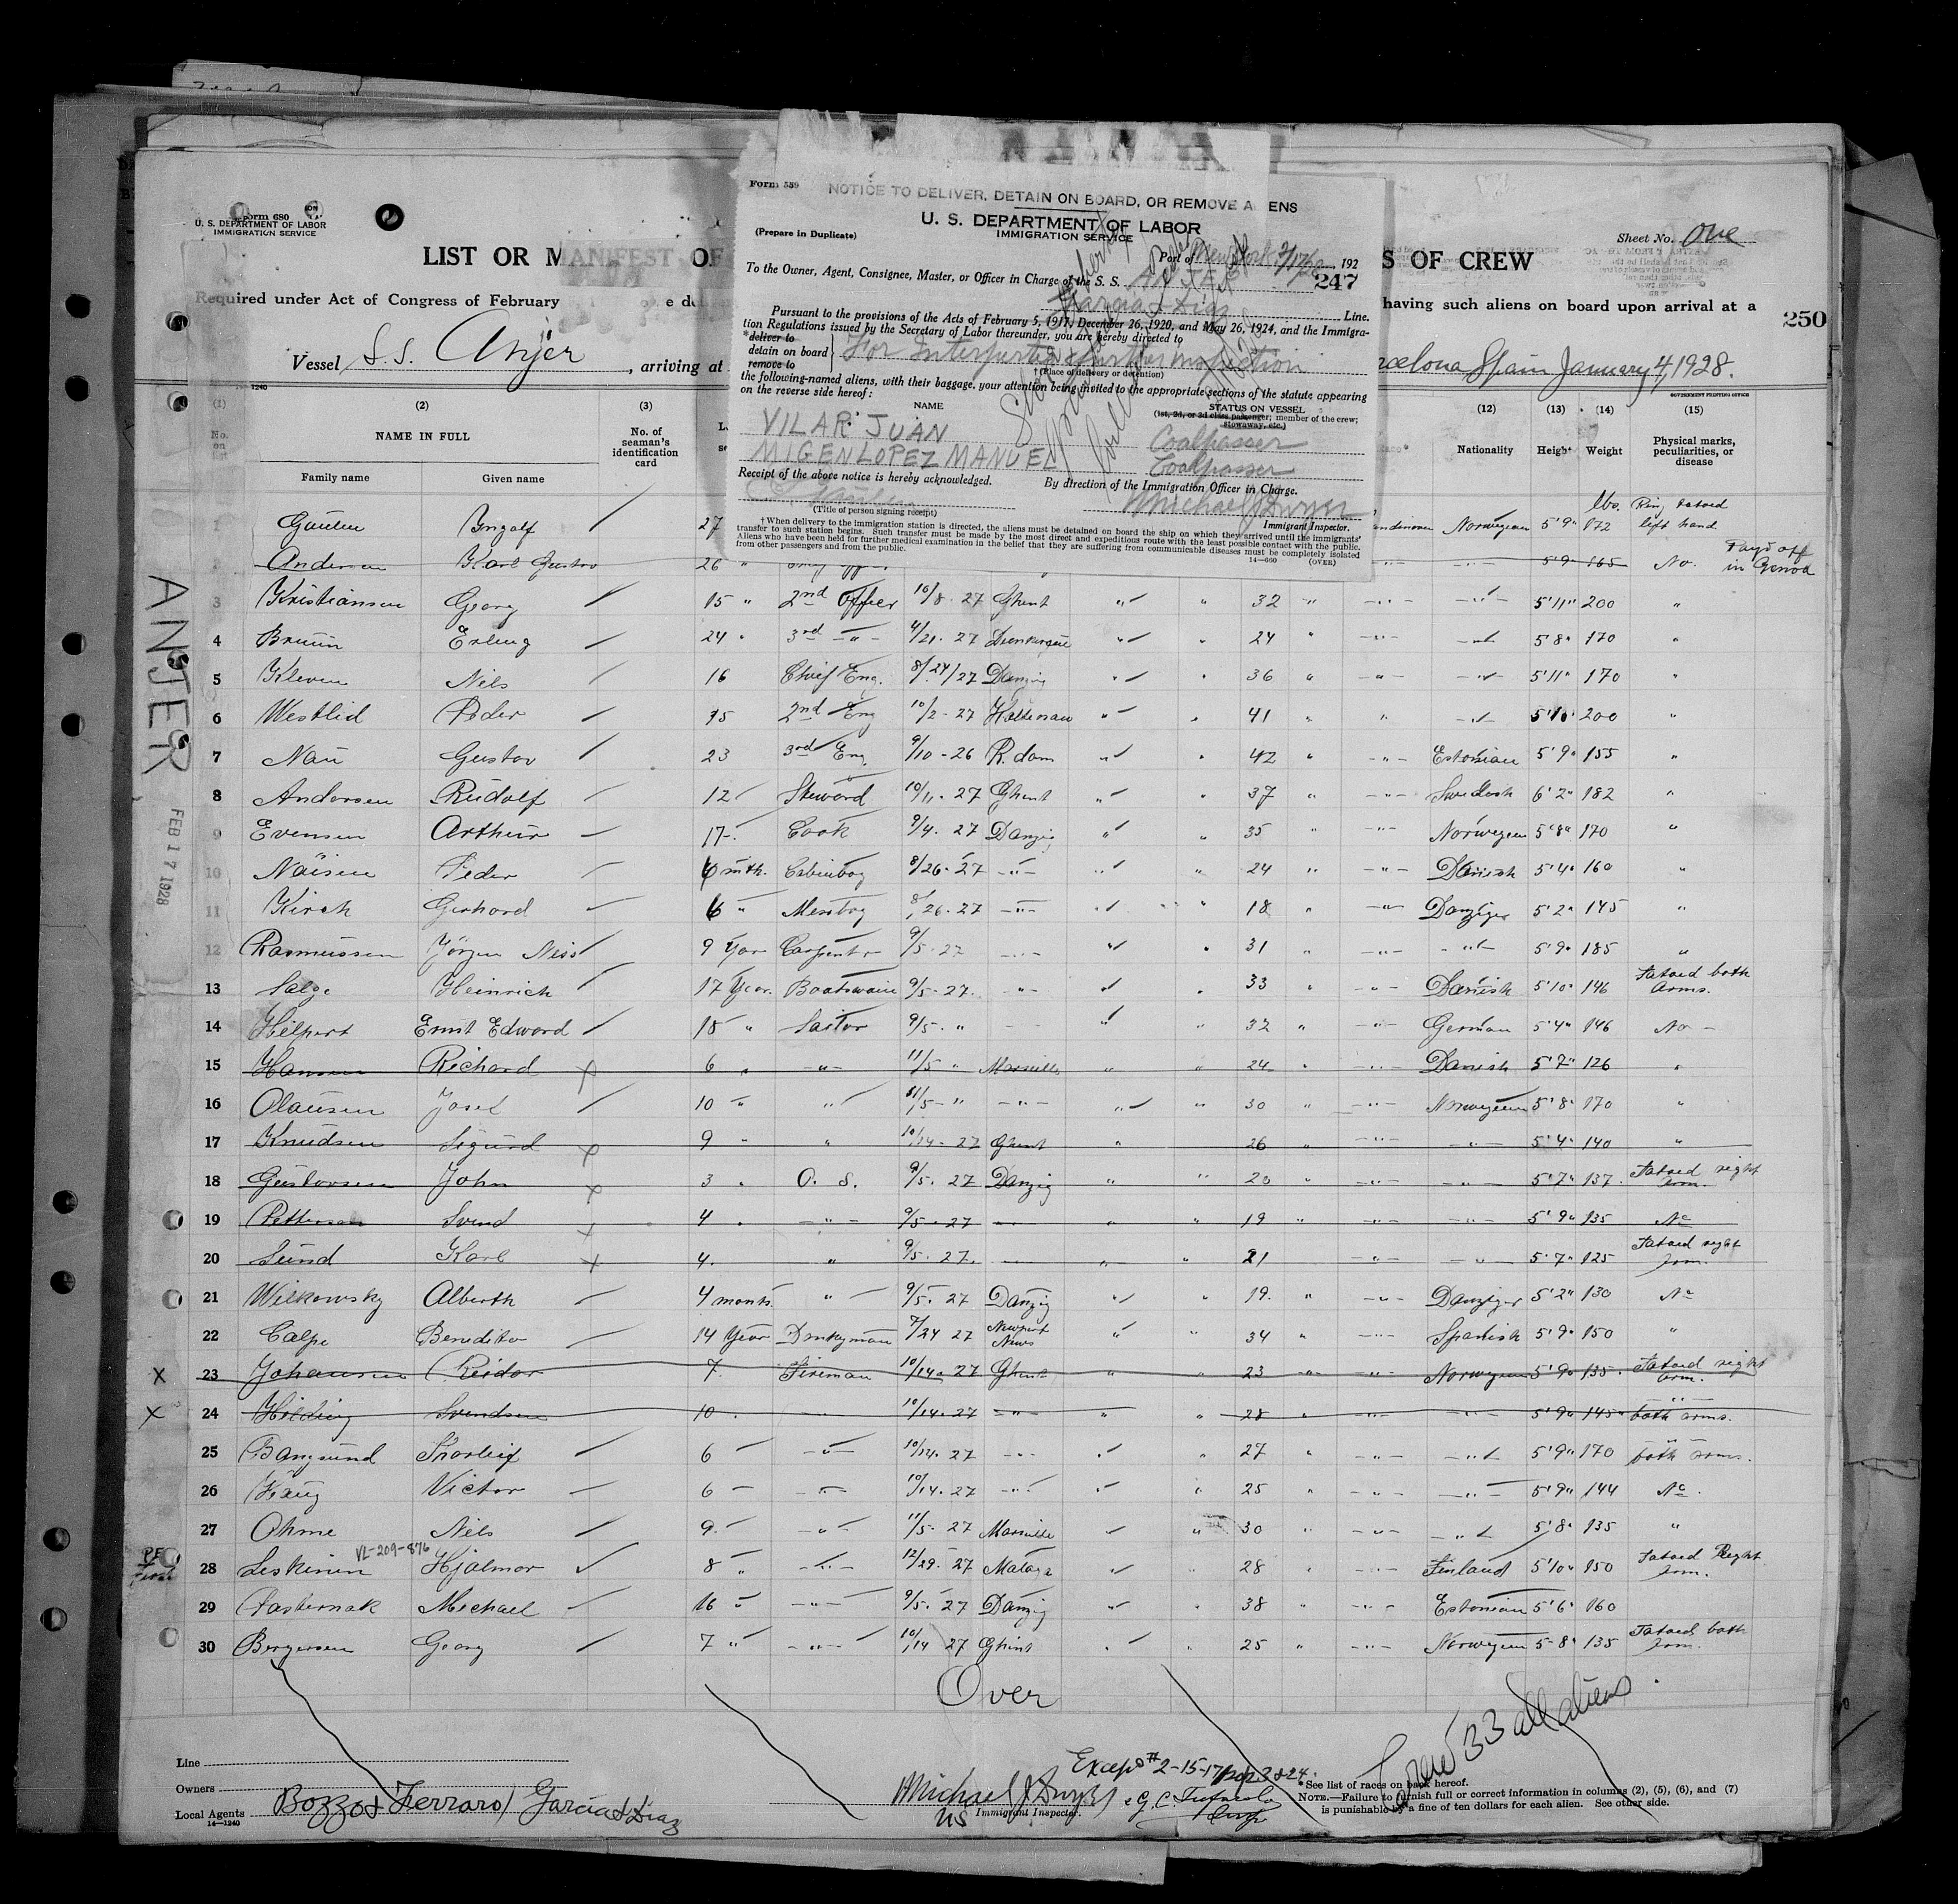 Form 559
NOTICE TO DELIVER, DETAIN ON BOARD, OR REMOVE ALIENS
U. S. DEPARTMENT OF LABOR
IMMIGRATION SERVICE
(Prepare in Duplicate)
Port of New York 2/17/28, 192
To the Owner, Agent, Consignee, Master, or Officer in Charge of the S. S. ANJER 247
Garcia & Diaz Line.
Pursuant to the provisions of the Acts of February 5, 1917, December 26, 1920, and May 26, 1924, and the Immigra-
tion Regulations issued by the Secretary of Labor thereunder, you are hereby directed to
*deliver to
detain on board
remove to
For further inspection
†(Place of delivery or detention)
the following-named aliens, with their baggage, your attention being invited to the appropriate sections of the statute appearing
on the reverse side hereof:
NAME
STATUS ON VESSEL
(1st, 2d, or 3d class passenger; member of the crew;
stowaway, etc.)
VILAR JUAN Coalpasser
MIGENLOPEZ MANUEL Coalpasser
Receipt of the above notice is hereby acknowledged. By direction of the Immigration Officer in Charge.
Michael J Dwyer
(Title of person signing receipt) Immigrant Inspector.
† When delivery to the immigration station is directed, the aliens must be detained on board the ship on which they arrived until the immigrants'
transfer to such station begins. Such transfer must be made by the most direct and expeditious route with the least possible contact with the public.
Aliens who have been held for further medical examination in the belief that they are suffering from communicable diseases must be completely isolated
from other passengers and from the public.
14—660 (OVER)
Form 680
U. S. DEPARTMENT OF LABOR
IMMIGRATION SERVICE
Sheet No. One
LIST OR MANIFEST OF S OF CREW
Required under Act of Congress of February having such aliens on board upon arrival at a
250
Vessel S.S. Anjer, arriving at rcelona Spain January 4, 1928.
1240
GOVERNMENT PRINTING OFFICE
(1) (2) (3) (12) (13) (14) (15)
No. on list
NAME IN FULL
Family name Given name
No. of seaman's identification card
Nationality Height Weight Physical marks, peculiarities, or disease
27 Norwegian 5'9" 172 lbs. Ring tatoed left hand
Andersen Karl Gustav 26 " 5'9" 165 No. Payd off in Genoa
3 Kristiansen Georg 15 " 2nd Officer 10/8-27 Ghent " " 32 " -"- -"- 5'11" 200 "
4 Bruun Erling 24 " 3rd -"- 4/21-27 Dunkerque " " 24 " -"- -"- 5'8" 170 "
5 Kleven Nils 16 Chief Eng. 8/24/27 Danzig " " 36 " -"- -"- 5'11" 170 "
6 Westlid Peder 15 2nd Eng 10/2-27 Holtenau " " 41 " " -"- 200 "
7 Nau Gustav 23 3rd Eng 9/10-26 R.dam " " 42 " -"- Estonian 5'9" 155 "
8 Andersen Rudolf 12 Steward 10/11-27 Ghent " " 37 " -"- Swedish 6'2" 182 "
9 Evensen Arthur 17 Cook 9/4-27 Danzig " " 35 " -"- Norwegian 5'8" 170 "
10 Peder 6 mth. Cabinboy 8/26-27 -"- " " 24 " -"- Danish 5'4" 160 "
11 Kirch Gerhard 6 " Messboy 8/26-27 -"- " " 18 " -"- Danziger 5'2" 145 "
12 Rasmussen Jörgen 9 Year Carpenter 9/5-27 -"- " " 31 " -"- -"- 5'9" 185 "
13 Salge Heinrich 17 Year Boatswain 9/5-27 -"- " " 33 " -"- Danish 5'10" 146 Tatoed both arms.
14 Hilpert Ernst Edward 18 " Sailor 9/5-" -"- " " 32 " -"- German 5'4" 146 No -
15 Hansen Richard 6 " -"- 11/5 " Marseille " " 24 " -"- Danish 5'7" 126 "
16 Olausen Josef 10 " " 11/5-" -"- " " 30 " -"- Norwegian 5'8" 170 "
17 Knudsen Sigurd 9 " " 10/14-27 Ghent " 26 " -"- -"- 5'4" 140 "
18 Gustavsen John 3 " O. S. 9/5-27 Danzig " " 20 " -"- -"- 5'7" 137 Tatoed right arm.
19 Pettersen Svend 4 " -"- 9/5-27 " " 19 " -"- -"- 5'9" 135 No
20 Sund Karl 4. " 9/5-27. " " 21 -"- " 5'7" 125 Tatoed right arm.
21 Wilkowsky Alberth 4 months " 9/5-27 Danzig " " 19. " -"- Danziger 5'2" 130 No
22 Calpe Benedito 14 Year Donkyman 7/24 27 Newport News " " 34 " -"- Spanish 5'9" 150 "
X 23 Johansen Reidar 7. Fireman 10/14-27 Ghent " " 23 -"- -"- Norwegian 5'9" 135 Tatoed right arm.
X 24 Hilding Svendsen 10. 10/14-27 -"- " " 28 " -"- -"- 5'9" 145 -"- both arms.
25 Bangsund Thorleif 6 -"- 10/14-27 -"- " " 27 " -"- -"- 5'9" 170 " both arms.
26 Haug Victor 6 -"- 10/14-27 -"- " " 25 " -"- -"- 5'9" 144 No.
27 Ohme Nils 9 -"- 11/5-27 Marseille " " 30 " -"- -"- 5'8" 135 "
28 Leskinen VL-209-876 Hjalmar 8 " -"- 12/29-27 Malaga " " 28 " -"- Finland 5'10" 150 Tatoed Right arm.
29 Pasternak Michael 16 " -"- 9/5-27 Danzig " " 38 " -"- Estonian 5'6" 160
30 Bergersen Georg 7 " -"- 10/14 27 Ghent " " 25 " -"- Norwegian 5-8" 135 Tatoed both arm.
Over
Crew 33 all aliens
ANJER
FEB 17 1928
Line
Owners
Local Agents Bozzo & Ferraro / Garcia & Diaz
14—1240
Except # 2-15-17
Michael J Dwyer
US Immigrant Inspector.
*See list of races on back hereof.
NOTE.—Failure to furnish full or correct information in columns (2), (5), (6), and (7)
is punishable by a fine of ten dollars for each alien. See other side.